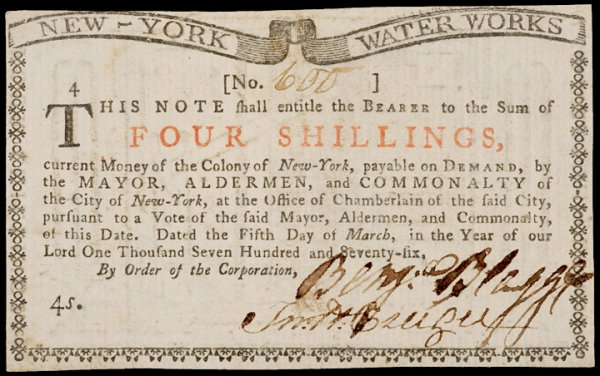 NEW-YORK WATER WORKS
[No. 600 ]
4
THIS NOTE ſhall entitle the BEARER to the Sum of
FOUR SHILLINGS,
current Money of the Colony of New-York, payable on DEMAND, by
the MAYOR, ALDERMEN, and COMMONALTY of
the City of New-York, at the Office of Chamberlain of the ſaid City,
purſuant to a Vote of the ſaid Mayor, Aldermen, and Commonalty,
of this Date. Dated the Fifth Day of March, in the Year of our
Lord One Thouſand Seven Hundred and Seventy-ſix.
By Order of the Corporation,
Benj. Blagge
4s.